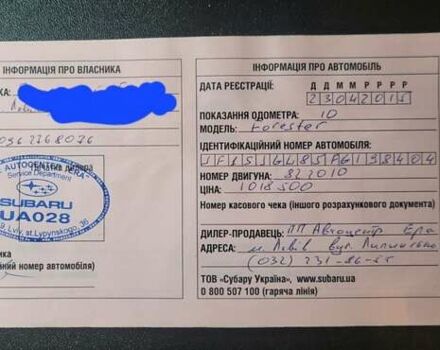 ІНФОРМАЦІЯ ПРО ВЛАСНИКА
КА:
0962268076
Печатка дилера
AUTOCENTRE "ERA"
Service Department
SUBARU
UA028
79, Lviv, st. Lypynskogo, 36
ка)
ійний номер автомобіля)
ІНФОРМАЦІЯ ПРО АВТОМОБІЛЬ
Д Д М М Р Р Р Р
ДАТА РЕЄСТРАЦІЇ: 23042015
ПОКАЗАННЯ ОДОМЕТРА: 10
МОДЕЛЬ: Forester
ІДЕНТИФІКАЦІЙНИЙ НОМЕР АВТОМОБІЛЯ:
НОМЕР ДВИГУНА: 822010
ЦІНА: 1018500
Номер касового чека (іншого розрахункового документа)
ДИЛЕР-ПРОДАВЕЦЬ: ПП Автоцентр Ера
АДРЕСА: м. Львів вул. Липинського
(032) 231-86-25
ТОВ «Субару Україна», www.subaru.ua
0 800 507 100 (гаряча лінія)